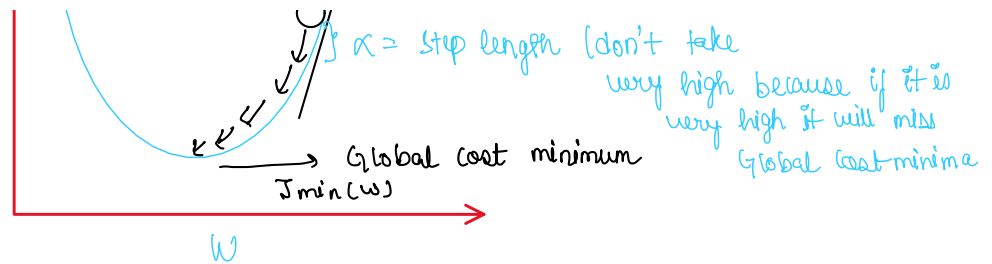 } α = step length (don't take
very high because if it is
very high it will miss
Global cost minima
Global cost minimum
Jmin(w)
W